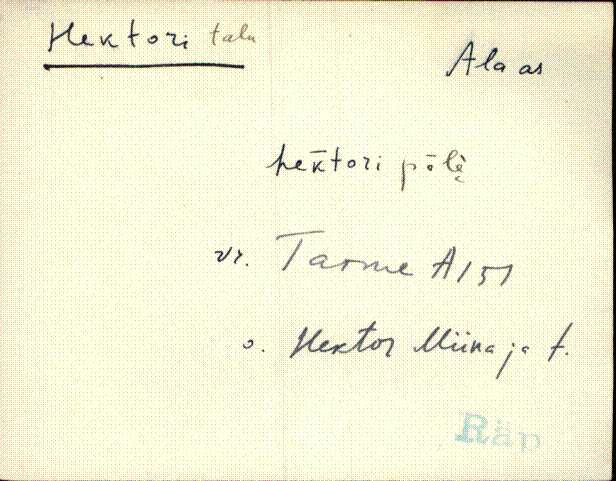 Hektori talu
Ala as
hek̄tori pōlè̬
vr. Tarme A151
o. Hektor Miina ja t.
Räp